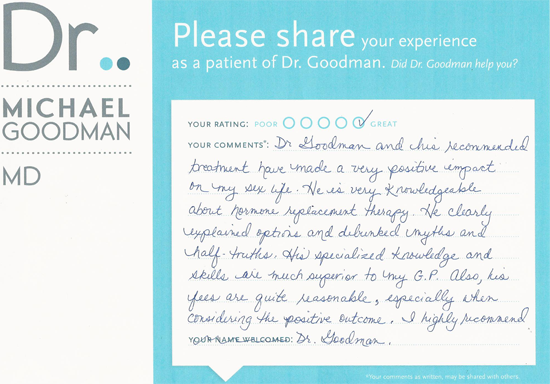 Dr..
MICHAEL
GOODMAN
MD
Please share your experience
as a patient of Dr. Goodman. Did Dr. Goodman help you?
YOUR RATING: POOR GREAT
YOUR COMMENTS*: Dr Goodman and his recommended
treatment have made a very positive impact
on my sex life. He is very knowledgeable
about hormone replacement therapy. He clearly
explained options and debunked myths and
half-truths. His specialized knowledge and
skills are much superior to my G.P. Also, his
fees are quite reasonable, especially when
considering the positive outcome. I highly recommend
YOUR NAME WELCOMED: Dr. Goodman.
*Your comments as written, may be shared with others.